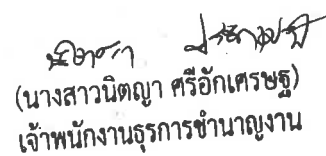 (นางสาวนิตญา ศรีอักเศรษฐ)
เจ้าพนักงานธุรการชำนาญงาน